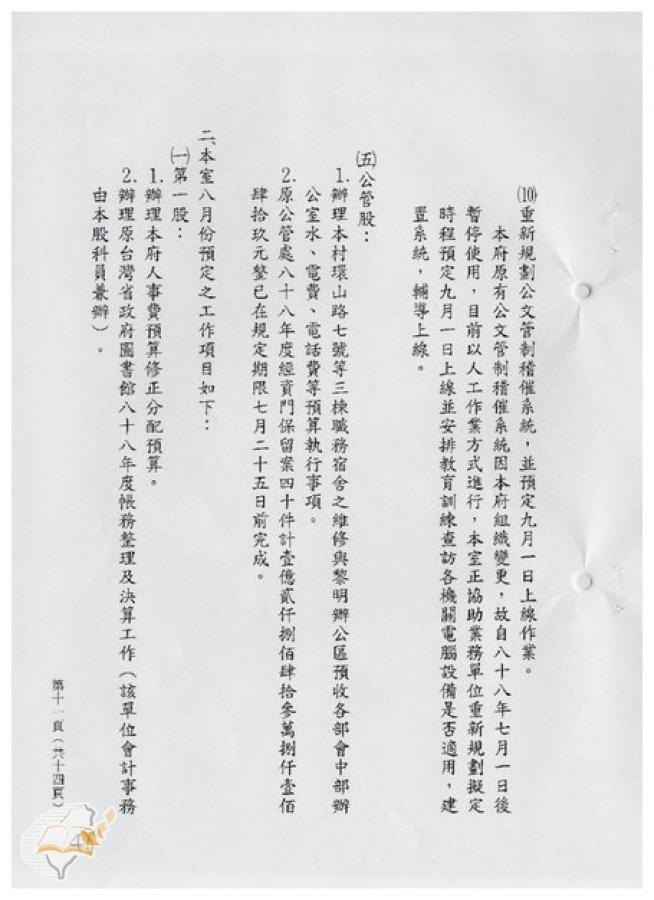 ⑽重新規劃公文管制稽催系統，並預定九月一日上線作業。
本府原有公文管制稽催系統因本府組織變更，故自八十八年七月一日後
暫停使用，目前以人工作業方式進行，本室正協助業務單位重新規劃擬定
時程預定九月一日上線並安排教育訓練查訪各機關電腦設備是否適用，建
置系統，輔導上線。
㈤公管股：
1.辦理本村環山路七號等三棟職務宿舍之維修與黎明辦公區預收各部會中部辦
公室水、電費、電話費等預算執行事項。
2.原公管處八十八年度經資門保留案四十件計壹億貳仟捌佰肆拾參萬捌仟壹佰
肆拾玖元整已在規定期限七月二十五日前完成。
二、本室八月份預定之工作項目如下：
㈠第一股：
1.辦理本府人事費預算修正分配預算。
2.辦理原台灣省政府圖書館八十八年度帳務整理及決算工作（該單位會計事務
由本股科員兼辦）。
第十一頁（共十四頁）